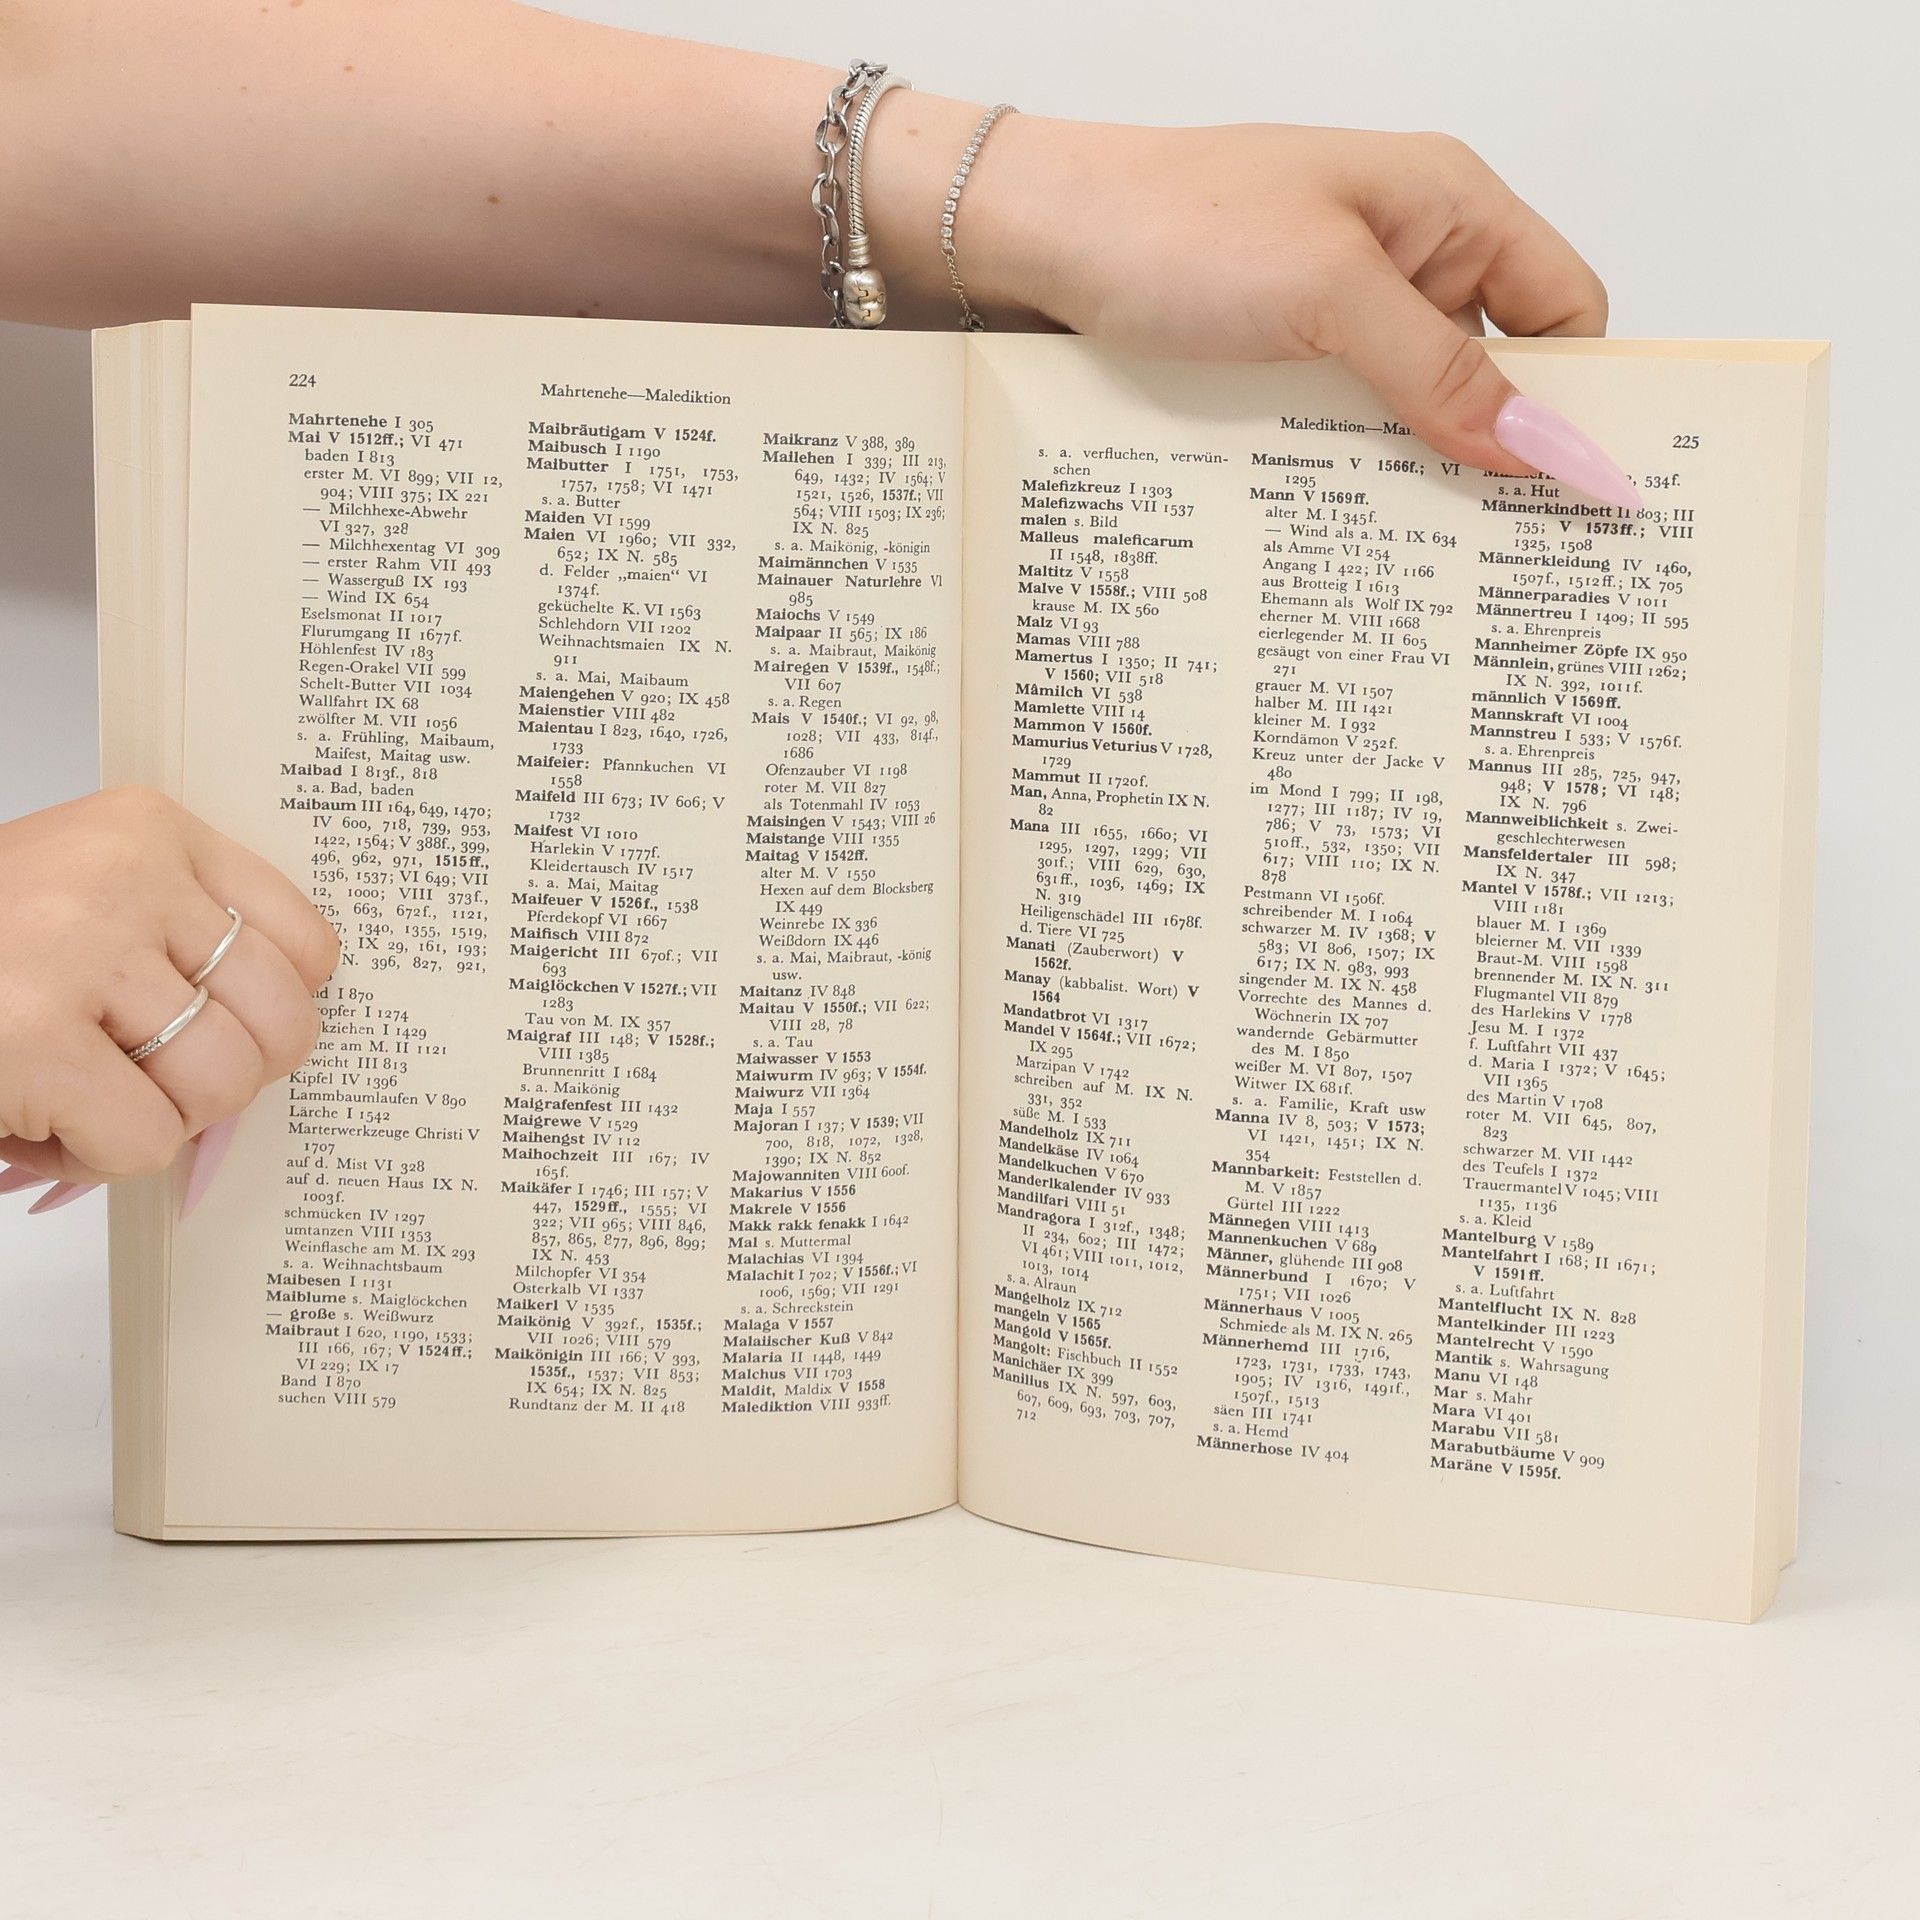 224
Mahrtenehe—Malediktion
Mahrtenehe I 305
Mai V 1512ff.; VI 471
baden I 813
erster M. VI 899; VII 12,
904; VIII 375; IX 221
— Milchhexe-Abwehr
VI 327, 328
— Milchhexentag VI 309
— erster Rahm VII 493
— Wasserguß IX 193
— Wind IX 654
Eselsmonat II 1017
Flurumgang II 1677f.
Höhlenfest IV 183
Regen-Orakel VII 599
Schelt-Butter VII 1034
Wallfahrt IX 68
zwölfter M. VII 1056
s. a. Frühling, Maibaum,
Maifest, Maitag usw.
Maibad I 813f., 818
s. a. Bad, baden
Maibaum III 164, 649, 1470;
IV 600, 718, 739, 953,
1422, 1564; V 388f., 399,
496, 962, 971, 1515ff.,
1536, 1537; VI 649; VII
12, 1000; VIII 373f.,
663, 672f., 1121,
1340, 1355, 1519,
IX 29, 161, 193;
N. 396, 827, 921,
I 870
I 1274
I 1429
am M. II 1121
III 813
Kipfel IV 1396
Lammbaumlaufen V 890
Lärche I 1542
Marterwerkzeuge Christi V
1707
auf d. Mist VI 328
auf d. neuen Haus IX N.
1003f.
schmücken IV 1297
umtanzen VIII 1353
Weinflasche am M. IX 293
s. a. Weihnachtsbaum
Maibesen I 1131
Maiblume s. Maiglöckchen
— große s. Weißwurz
Maibraut I 620, 1190, 1533;
III 166, 167; V 1524ff.;
VI 229; IX 17
Band I 870
suchen VIII 579
Maibräutigam V 1524f.
Maibusch I 1190
Maibutter I 1751, 1753,
1757, 1758; VI 1471
s. a. Butter
Maiden VI 1599
Maien VI 1960; VII 332,
652; IX N. 585
d. Felder „maien“ VI
1374f.
geküchelte K. VI 1563
Schlehdorn VII 1202
Weihnachtsmaien IX N.
911
s. a. Mai, Maibaum
Maiengehen V 920; IX 458
Maienstier VIII 482
Maientau I 823, 1640, 1726,
1733
Maifeier: Pfannkuchen VI
1558
Maifeld III 673; IV 606; V
1732
Maifest VI 1010
Harlekin V 1777f.
Kleidertausch IV 1517
s. a. Mai, Maitag
Maifeuer V 1526f., 1538
Pferdekopf VI 1667
Maifisch VIII 872
Maigericht III 670f.; VII
693
Maiglöckchen V 1527f.; VII
1283
Tau von M. IX 357
Maigraf III 148; V 1528f.;
VIII 1385
Brunnenritt I 1684
s. a. Maikönig
Maigrafenfest III 1432
Maigrewe V 1529
Maihengst IV 112
Maihochzeit III 167; IV
165f.
Maikäfer I 1746; III 157; V
447, 1529ff., 1555; VI
322; VII 965; VIII 846,
857, 865, 877, 896, 899;
IX N. 453
Milchopfer VI 354
Osterkalb VI 1337
Maikerl V 1535
Maikönig V 392f., 1535f.;
VII 1026; VIII 579
Maikönigin III 166; V 393,
1535f., 1537; VII 853;
IX 654; IX N. 825
Rundtanz der M. II 418
Maikranz V 388, 389
Mailehen I 339; III 213,
649, 1432; IV 1564; V
1521, 1526, 1537f.; VII
564; VIII 1503; IX 236;
IX N. 825
s. a. Maikönig, -königin
Maimännchen V 1535
Mainauer Naturlehre VI
985
Maiochs V 1549
Maipaar II 565; IX 186
s. a. Maibraut, Maikönig
Mairegen V 1539f., 1548f.;
VII 607
s. a. Regen
Mais V 1540f.; VI 92, 98,
1028; VII 433, 814f.,
1686
Ofenzauber VI 1198
roter M. VII 827
als Totenmahl IV 1053
Maisingen V 1543; VIII 26
Maistange VIII 1355
Maitag V 1542ff.
alter M. V 1550
Hexen auf dem Blocksberg
IX 449
Weinrebe IX 336
Weißdorn IX 446
s. a. Mai, Maibraut, -könig
usw.
Maitanz IV 848
Maitau V 1550f.; VII 622;
VIII 28, 78
s. a. Tau
Maiwasser V 1553
Maiwurm IV 963; V 1554f.
Maiwurz VII 1364
Maja I 557
Majoran I 137; V 1539; VII
700, 818, 1072, 1328,
1390; IX N. 852
Majowanniten VIII 600f.
Makarius V 1556
Makrele V 1556
Makk rakk fenakk I 1642
Mal s. Muttermal
Malachias VI 1394
Malachit I 702; V 1556f.; VI
1006, 1569; VII 1291
s. a. Schreckstein
Malaga V 1557
Malaiischer Kuß V 842
Malaria II 1448, 1449
Malchus VII 1703
Maldit, Maldix V 1558
Malediktion VIII 933ff.
Malediktion—
225
s. a. verfluchen, verwün-
schen
Malefizkreuz I 1303
Malefizwachs VII 1537
malen s. Bild
Malleus maleficarum
II 1548, 1838ff.
Maltitz V 1558
Malve V 1558f.; VIII 508
krause M. IX 560
Malz VI 93
Mamas VIII 788
Mamertus I 1350; II 741;
V 1560; VII 518
Mämilch VI 538
Mamlette VIII 14
Mammon V 1560f.
Mamurius Veturius V 1728,
1729
Mammut II 1720f.
Man, Anna, Prophetin IX N.
82
Mana III 1655, 1660; VI
1295, 1297, 1299; VII
301f.; VIII 629, 630,
631ff., 1036, 1469; IX
N. 319
Heiligenschädel III 1678f.
d. Tiere VI 725
Manati (Zauberwort) V
1562f.
Manay (kabbalist. Wort) V
1564
Mandatbrot VI 1317
Mandel V 1564f.; VII 1672;
IX 295
Marzipan V 1742
schreiben auf M. IX N.
331, 352
süße M. I 533
Mandelholz IX 711
Mandelkäse IV 1064
Mandelkuchen V 670
Manderlkalender IV 933
Mandilfari VIII 51
Mandragora I 312f., 1348;
II 234, 602; III 1472;
VI 461; VIII 1011, 1012,
1013, 1014
s. a. Alraun
Mangelholz IX 712
mangeln V 1565
Mangold V 1565f.
Mangolt: Fischbuch II 1552
Manichäer IX 399
Manilius IX N. 597, 603,
607, 609, 693, 703, 707,
712
Manismus V 1566f.; VI
1295
Mann V 1569ff.
alter M. I 345f.
— Wind als a. M. IX 634
als Amme VI 254
Angang I 422; IV 1166
aus Brotteig I 1613
Ehemann als Wolf IX 792
eherner M. VIII 1668
eierlegender M. II 605
gesäugt von einer Frau VI
271
grauer M. VI 1507
halber M. III 1421
kleiner M. I 932
Korndämon V 252f.
Kreuz unter der Jacke V
480
im Mond I 799; II 198,
1277; III 1187; IV 19,
786; V 73, 1573; VI
510ff., 532, 1350; VII
617; VIII 110; IX N.
878
Pestmann VI 1506f.
schreibender M. I 1064
schwarzer M. IV 1368; V
583; VI 806, 1507; IX
617; IX N. 983, 993
singender M. IX N. 458
Vorrechte des Mannes d.
Wöchnerin IX 707
wandernde Gebärmutter
des M. I 850
weißer M. VI 807, 1507
Witwer IX 681f.
s. a. Familie, Kraft usw
Manna IV 8, 503; V 1573;
VI 1421, 1451; IX N.
354
Mannbarkeit: Feststellen d.
M. V 1857
Gürtel III 1222
Männegen VIII 1413
Mannenkuchen V 689
Männer, glühende III 908
Männerbund I 1670; V
1751; VII 1026
Männerhaus V 1005
Schmiede als M. IX N. 265
Männerhemd III 1716,
1723, 1731, 1733, 1743,
1905; IV 1316, 1491f.,
1507f., 1513
säen III 1741
s. a. Hemd
Männerhose IV 404
534f.
s. a. Hut
Männerkindbett II 803; III
755; V 1573ff.; VIII
1325, 1508
Männerkleidung IV 1460,
1507f., 1512ff.; IX 705
Männerparadies V 1011
Männertreu I 1409; II 595
s. a. Ehrenpreis
Mannheimer Zöpfe IX 950
Männlein, grünes VIII 1262;
IX N. 392, 1011f.
männlich V 1569ff.
Mannskraft VI 1004
Mannstreu I 533; V 1576f.
s. a. Ehrenpreis
Mannus III 285, 725, 947,
948; V 1578; VI 148;
IX N. 796
Mannweiblichkeit s. Zwei-
geschlechterwesen
Mansfeldertaler III 598;
IX N. 347
Mantel V 1578f.; VII 1213;
VIII 1181
blauer M. I 1369
bleierner M. VII 1339
Braut-M. VIII 1598
brennender M. IX N. 311
Flugmantel VII 879
des Harlekins V 1778
Jesu M. I 1372
f. Luftfahrt VII 437
d. Maria I 1372; V 1645;
VII 1365
des Martin V 1708
roter M. VII 645, 807,
823
schwarzer M. VII 1442
des Teufels I 1372
Trauermantel V 1045; VIII
1135, 1136
s. a. Kleid
Mantelburg V 1589
Mantelfahrt I 168; II 1671;
V 1591ff.
s. a. Luftfahrt
Mantelflucht IX N. 828
Mantelkinder III 1223
Mantelrecht V 1590
Mantik s. Wahrsagung
Manu VI 148
Mar s. Mahr
Mara VI 401
Marabu VII 581
Marabutbäume V 909
Maräne V 1595f.